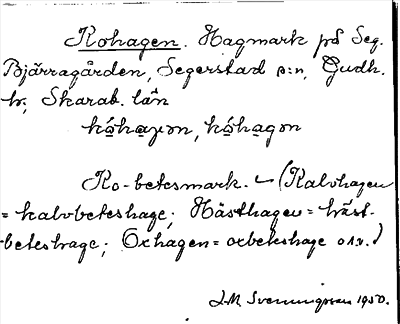 Kohagen. Hagmark på Seg.
Bjärragården, Segerstad s:n, Gudh.
hr, Skarab. län
kóhaɣən, kóhagən
Ko-betesmark. – (Kalvhagen
= kalvbeteshage; Hästhagen = häst-
beteshage; Oxhagen = oxbeteshage o.s.v.)
J.M. Svenningsson 1950.